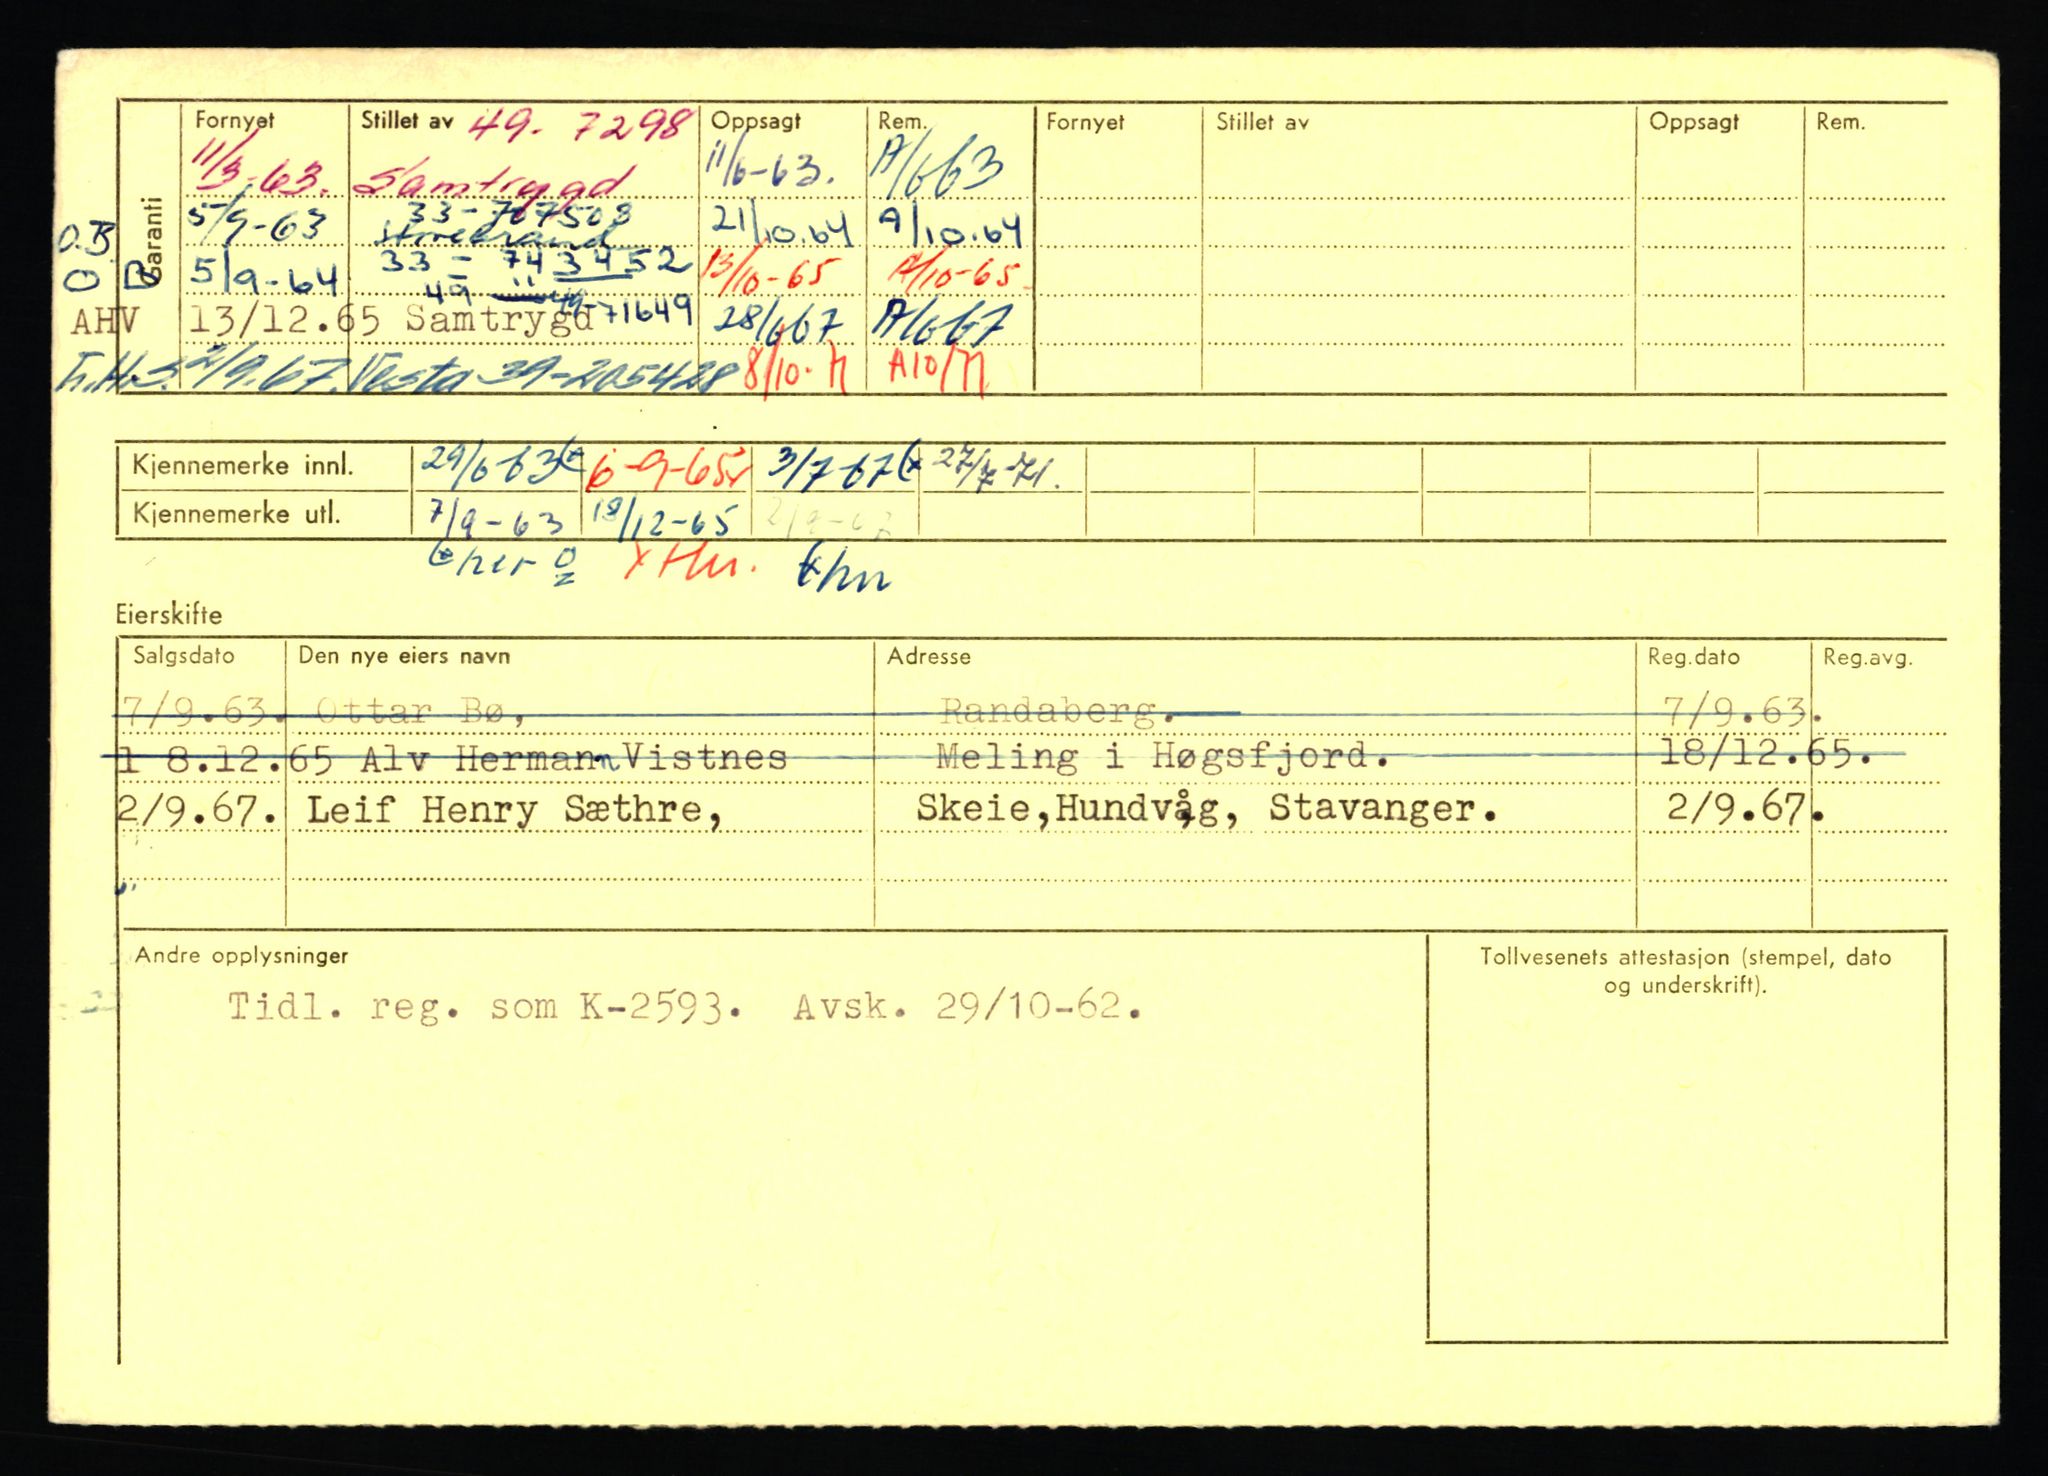 Garanti
Fornyet Stillet av 49- 7298 Oppsagt Rem. Fornyet Stillet av Oppsagt Rem.
11/3-63. Samtrygd 11/6-63. A/6 63
O.B. 5/9-63 33-767508 21/10.64 A/10.64
Storebrand
O B 5/9-64 33 - 743452 13/10-65 A/10-65
49 " 49-71649
AHV 13/12.65 Samtrygd 28/6 67 A/6 67
L.H.S. 2/9.67. Vesta 39-205428 8/10. 71 A10/71
Kjennemerke innl. 29/6 63 6-9-65 3/7-67 27/7-71.
Kjennemerke utl. 7/9-63 18/12-65 2/9-67
her
Eierskifte
Salgsdato Den nye eiers navn Adresse Reg.dato Reg.avg.
7/9.63. Ottar Bø, Randaberg. 7/9.63.
1 8.12.65 Alv Hermann Vistnes Meling i Høgsfjord. 18/12.65.
2/9.67. Leif Henry Sæthre, Skeie,Hundvåg, Stavanger. 2/9.67.
Andre opplysninger
Tidl. reg. som K-2593. Avsk. 29/10-62.
Tollvesenets attestasjon (stempel, dato
og underskrift).